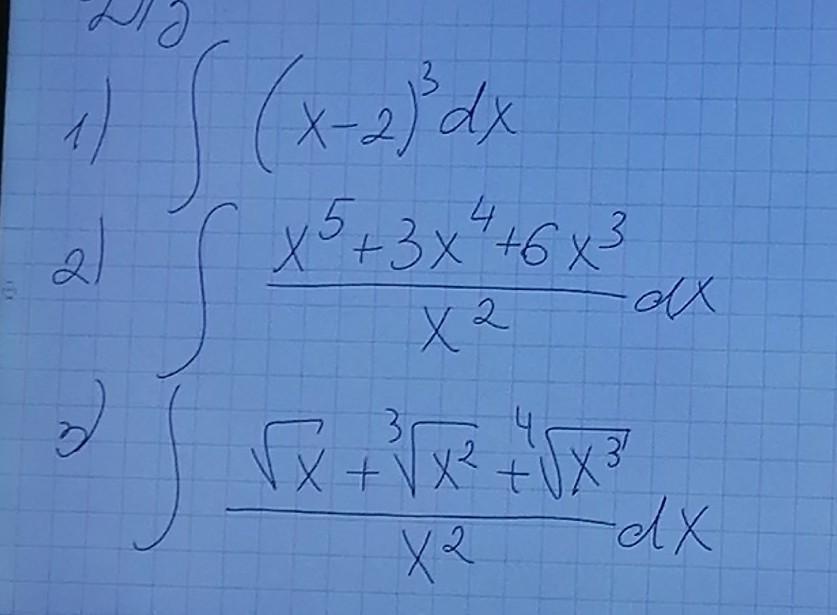 Д/з
1) ∫ (x-2)³dx
2) ∫ (x⁵+3x⁴+6x³)/x² dx
3) ∫ (√x + ∛x² + ∜x³)/x² dx